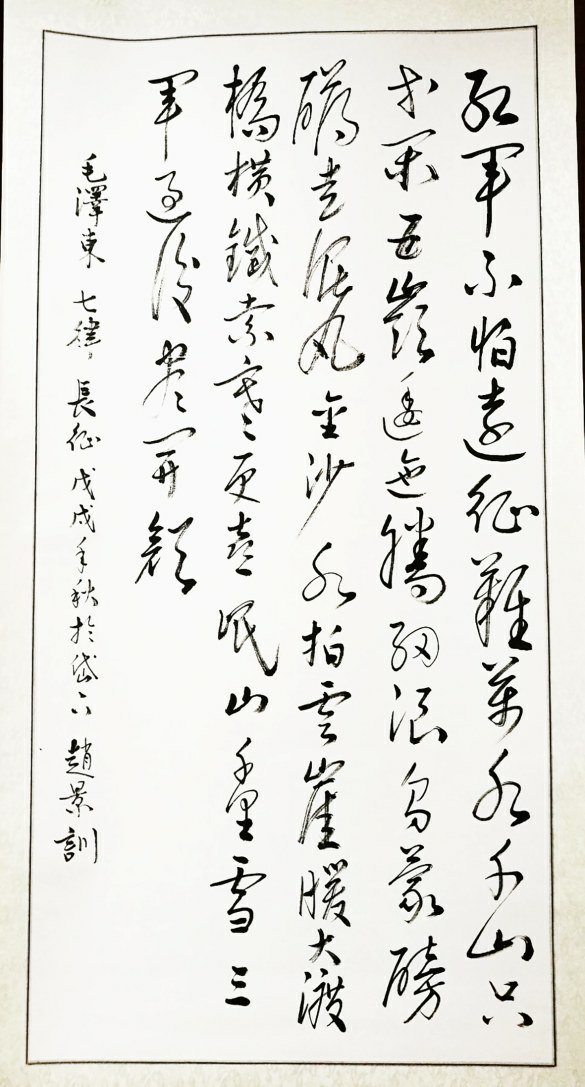 紅軍不怕遠征難萬水千山只
等閑五嶺逶迤騰細浪烏蒙磅
礴走泥丸金沙水拍雲崖暖大渡
橋横鐵索寒更喜岷山千里雪三
軍過後盡開顏
毛澤東 七律 長征 戊戌年秋於岱下 趙景訓